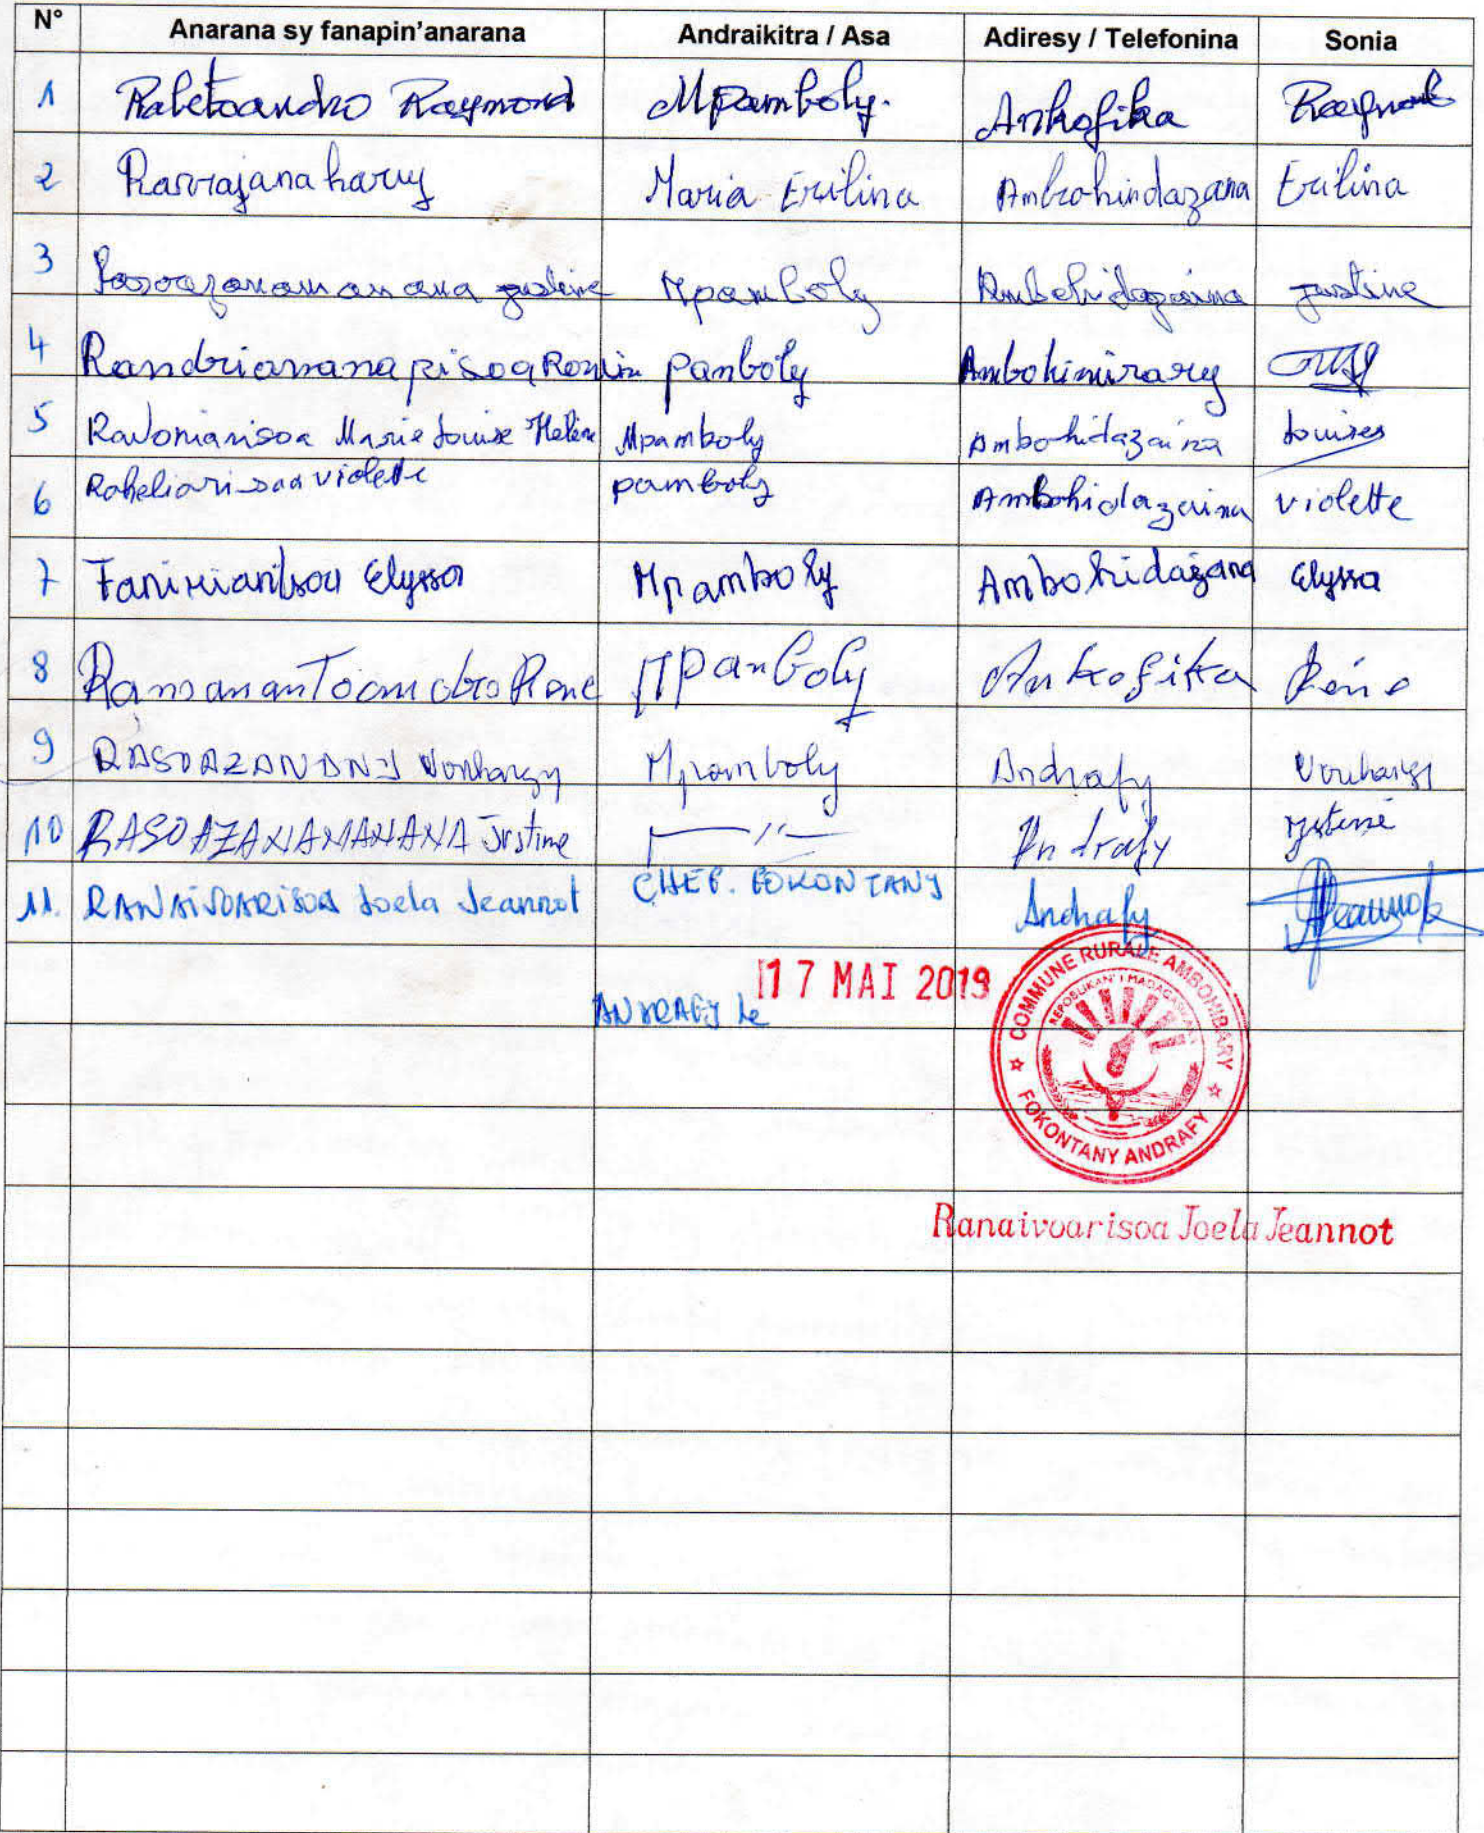 N° Anarana sy fanapin'anarana Andraikitra / Asa Adiresy / Telefonina Sonia
1 Raletoandro Raymond Mpamboly. Ankofika Raymond
2 Ravaojanahary Maria Erilina Ambohindazana Erilina
3 Rasoazanamanana Justine Mpamboly Ambohidazaina Justine
4 Randriamanapisoa panboly Ambohimirary
5 Ravoniarisoa Marie Louise Helène Mpamboly Ambohidazaina Louises
6 Raheliarisoa violette pamboly Ambohidazaina violette
7 Elyssa Mpamboly Ambohidazana Elyssa
8 Ramanantoandro Réné Mpanboly Ankofika Réné
9 RASOAZANANY Vonhangy Mpamboly Andrafy Vonhangy
10 RASOAZANAMANANA Justine —〃— Andrafy Justine
11. RANAIVOARISOA Joela Jeannot CHEF. FOKONTANY Andrafy Jeannot
ANDRAFY le 17 MAI 2019
COMMUNE RURALE AMBOHIBARY
REPOBLIKAN'I MADAGASIKARA
FOKONTANY ANDRAFY
Ranaivoarisoa Joela Jeannot